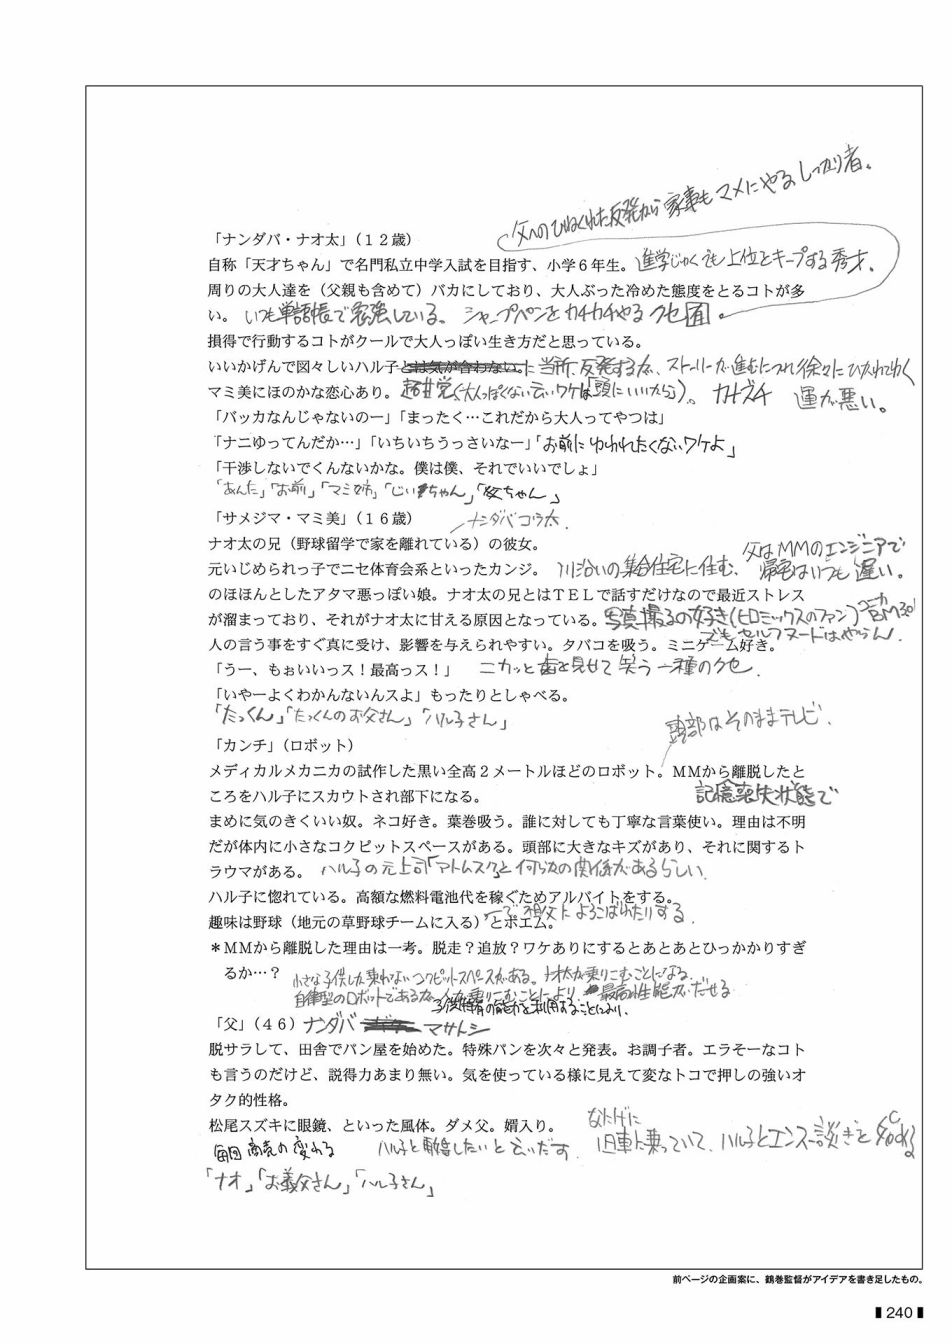 父へのひねくれた反発から家事もマメにやるしっかり者。
「ナンダバ・ナオ太」(12歳)
自称「天才ちゃん」で名門私立中学入試を目指す、小学6年生。進学じゅくでも上位をキープする秀才。
周りの大人達を(父親も含めて)バカにしており、大人ぶった冷めた態度をとるコトが多
い。いつも単語帳で勉強している。シャープペンをカチカチやるクセ有。
損得で行動するコトがクールで大人っぽい生き方だと思っている。
いいかげんで図々しいハル子とは気が合わない。に当所、反発するが、ストーリーが進むにつれ徐々にひかれてゆく
マミ美にほのかな恋心あり。超甘党(大人っぽくない。いいワケは「頭にいいから」)。カナヅチ 運が悪い。
「バッカなんじゃないのー」「まったく…これだから大人ってやつは」
「ナニゆってんだか…」「いちいちうっさいなー」「お前にゆわれたくないワケよ」
「干渉しないでくんないかな。僕は僕、それでいいでしょ」
「あんた」「お前」「マミ姉」「じいちゃん」「父ちゃん」
「サメジマ・マミ美」(16歳) ナンダバコウ太.
ナオ太の兄(野球留学で家を離れている)の彼女。
父はMMのエンジニアで
元いじめられっ子でニセ体育会系といったカンジ。川沿いの集合住宅に住む、帰宅はいつも遅い。
のほほんとしたアタマ悪っぽい娘。ナオ太の兄とはTELで話すだけなので最近ストレス
が溜まっており、それがナオ太に甘える原因となっている。写真撮るの好き(ヒロミックスのファン)
でもセルフヌードはやらん.
人の言う事をすぐ真に受け、影響を与えられやすい。タバコを吸う。ミニゲーム好き。
「うー、もぉいいっス!最高っス!」 ニカッと歯を見せて笑う一種のクセ.
「いやーよくわかんないんスよ」もったりとしゃべる。
「たっくん」「たっくんのお父さん」「ハル子さん」
頭部はそのままテレビ.
「カンチ」(ロボット)
メディカルメカニカの試作した黒い全高2メートルほどのロボット。MMから離脱したと
ころをハル子にスカウトされ部下になる。 記憶喪失状態で
まめに気のきくいい奴。ネコ好き。葉巻吸う。誰に対しても丁寧な言葉使い。理由は不明
だが体内に小さなコクピットスペースがある。頭部に大きなキズがあり、それに関するト
ラウマがある。ハル子の元上司「アトムスク」と何らかの関係があるらしい.
ハル子に惚れている。高額な燃料電池代を稼ぐためアルバイトをする。
趣味は野球(地元の草野球チームに入る)とポエム。で祖父によろこばれたりする.
*MMから離脱した理由は一考。脱走?追放?ワケありにするとあとあとひっかかりすぎ
るか…? 小さな子供しか乗れないコクピットスペースがある。ナオ太が乗りこむことになる.
自律型のロボットであるが、人が乗りこむことにより最高性能がだせる
子供特有の能力を利用することにより.
「父」(46) ナンダバ マサトシ
脱サラして、田舎でパン屋を始めた。特殊パンを次々と発表。お調子者。エラそーなコト
も言うのだけど、説得力あまり無い。気を使っている様に見えて変なトコで押しの強いオ
タク的性格。
松尾スズキに眼鏡、といった風体。ダメ父。婿入り。
毎回商売の変わる ハル子と再婚したいと言いだす. 旧車に乗っていて、ハル子とエンスー談ぎを
「ナオ」「お義父さん」「ハル子さん」
前ページの企画案に、鶴巻監督がアイデアを書き足したもの。
240